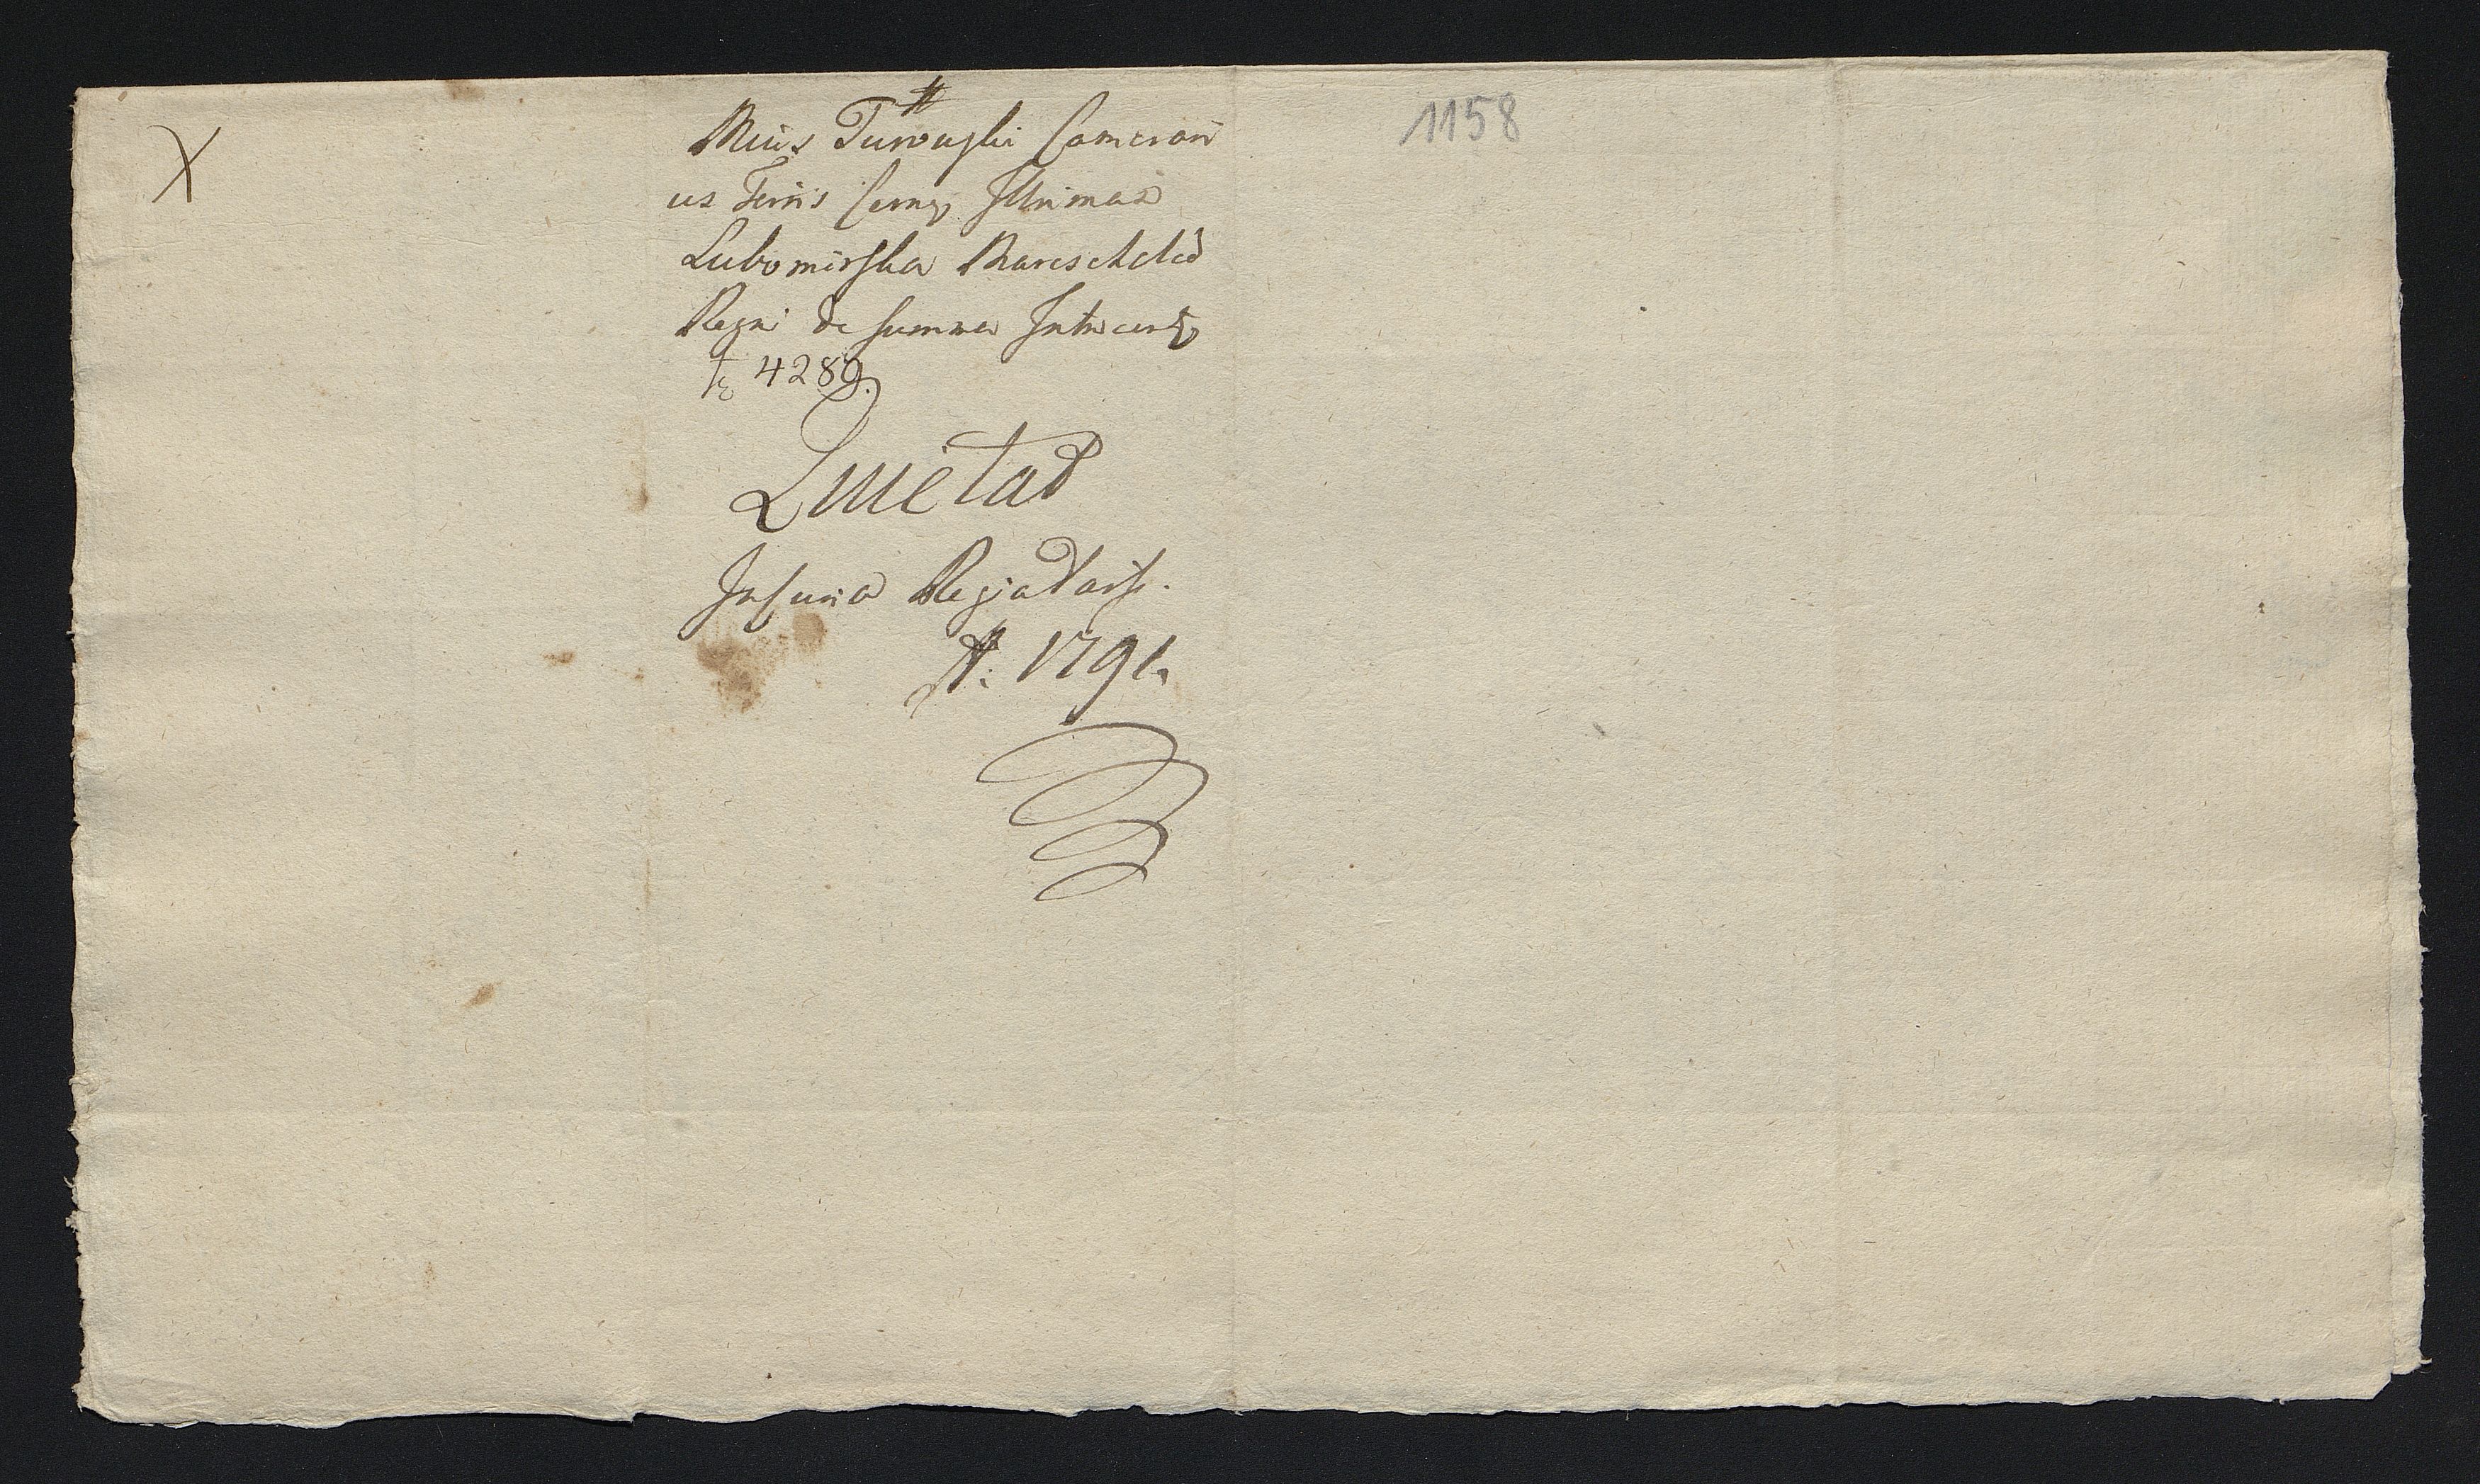 X
Mcus Turowski Camerari
us Terris Cerneg Illrimam
Lubomirska Mareschalcd
Regni de Summa Intraccert
fl 4289.
Quietat
In Curia Regia Varss.
A: 1791.
1158